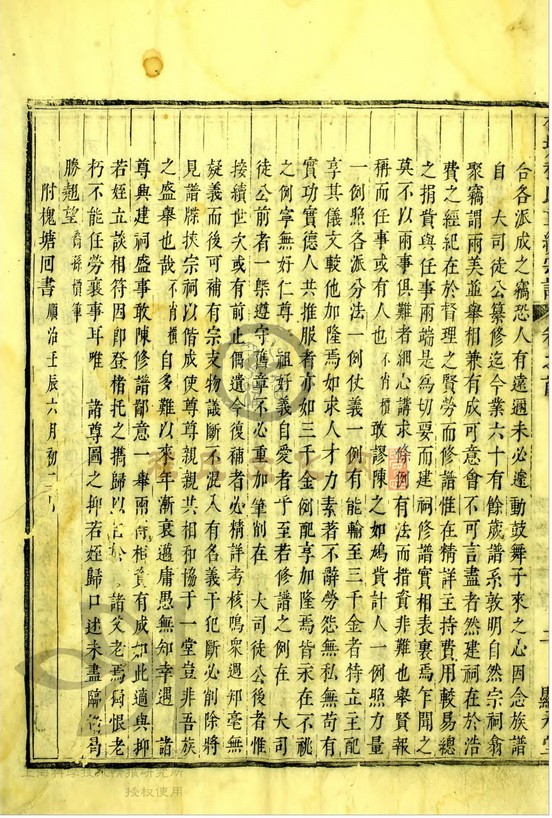 合各派成之竊恐人有遠邇未必違動鼓舞子來之心因念族譜
自　大司徒公纂修迄今業六十有餘歲譜系敦明自然宗祠翕
聚竊謂兩美並舉相兼有成可意會不可言盡者然建祠在於浩
費之經紀在於督理之賢勞而修譜惟在精詳主持費用較易總
之捐貲與任事兩端是為切要而建祠修譜實相表裏焉乍聞之
莫不以兩事俱難者細心講求條例有法而措資非難也舉賢報
稱而任事或有人也不肖檟敢謬陳之如鳩貲計人一例照力量
一例照各派分法一例仗義一例有能輸至三千金者特立主配
享其儀文較他加隆焉如求人才力素者不辭勞怨無私無苟有
實功實德人共推服者亦如三千金例配享加隆焉皆永在不祧
之例寧無好仁尊　祖好義自愛者乎至若修譜之例在　大司
徒公前者一槩遵守舊章不必重加筆削在　大司徒公後者惟
接續世次或有前止偶遺今復補者必精詳考核鳴衆週知毫無
疑義而後可補有宗支物議斷不混入有名義干犯斷必削除將
見譜牒扶宗祠以偕成使尊尊親親共相和協于一堂豈非吾族
之盛舉也哉不肖檟自多難以來年漸衰邁庸愚無知幸遇　諸
尊興建祠盛事敢陳修譜鄙意一舉兩得相資有成如此適與抑
若姪立談相符因即登楮托之擕歸以　諸父老焉獨恨老
朽不能任勞襄事耳唯　諸尊圖之抑若姪歸口述未盡臨楮曷
勝翹望裔孫檟肇
附槐塘回書順治壬辰六月初二
上海科學技術情報研究所
授权使用